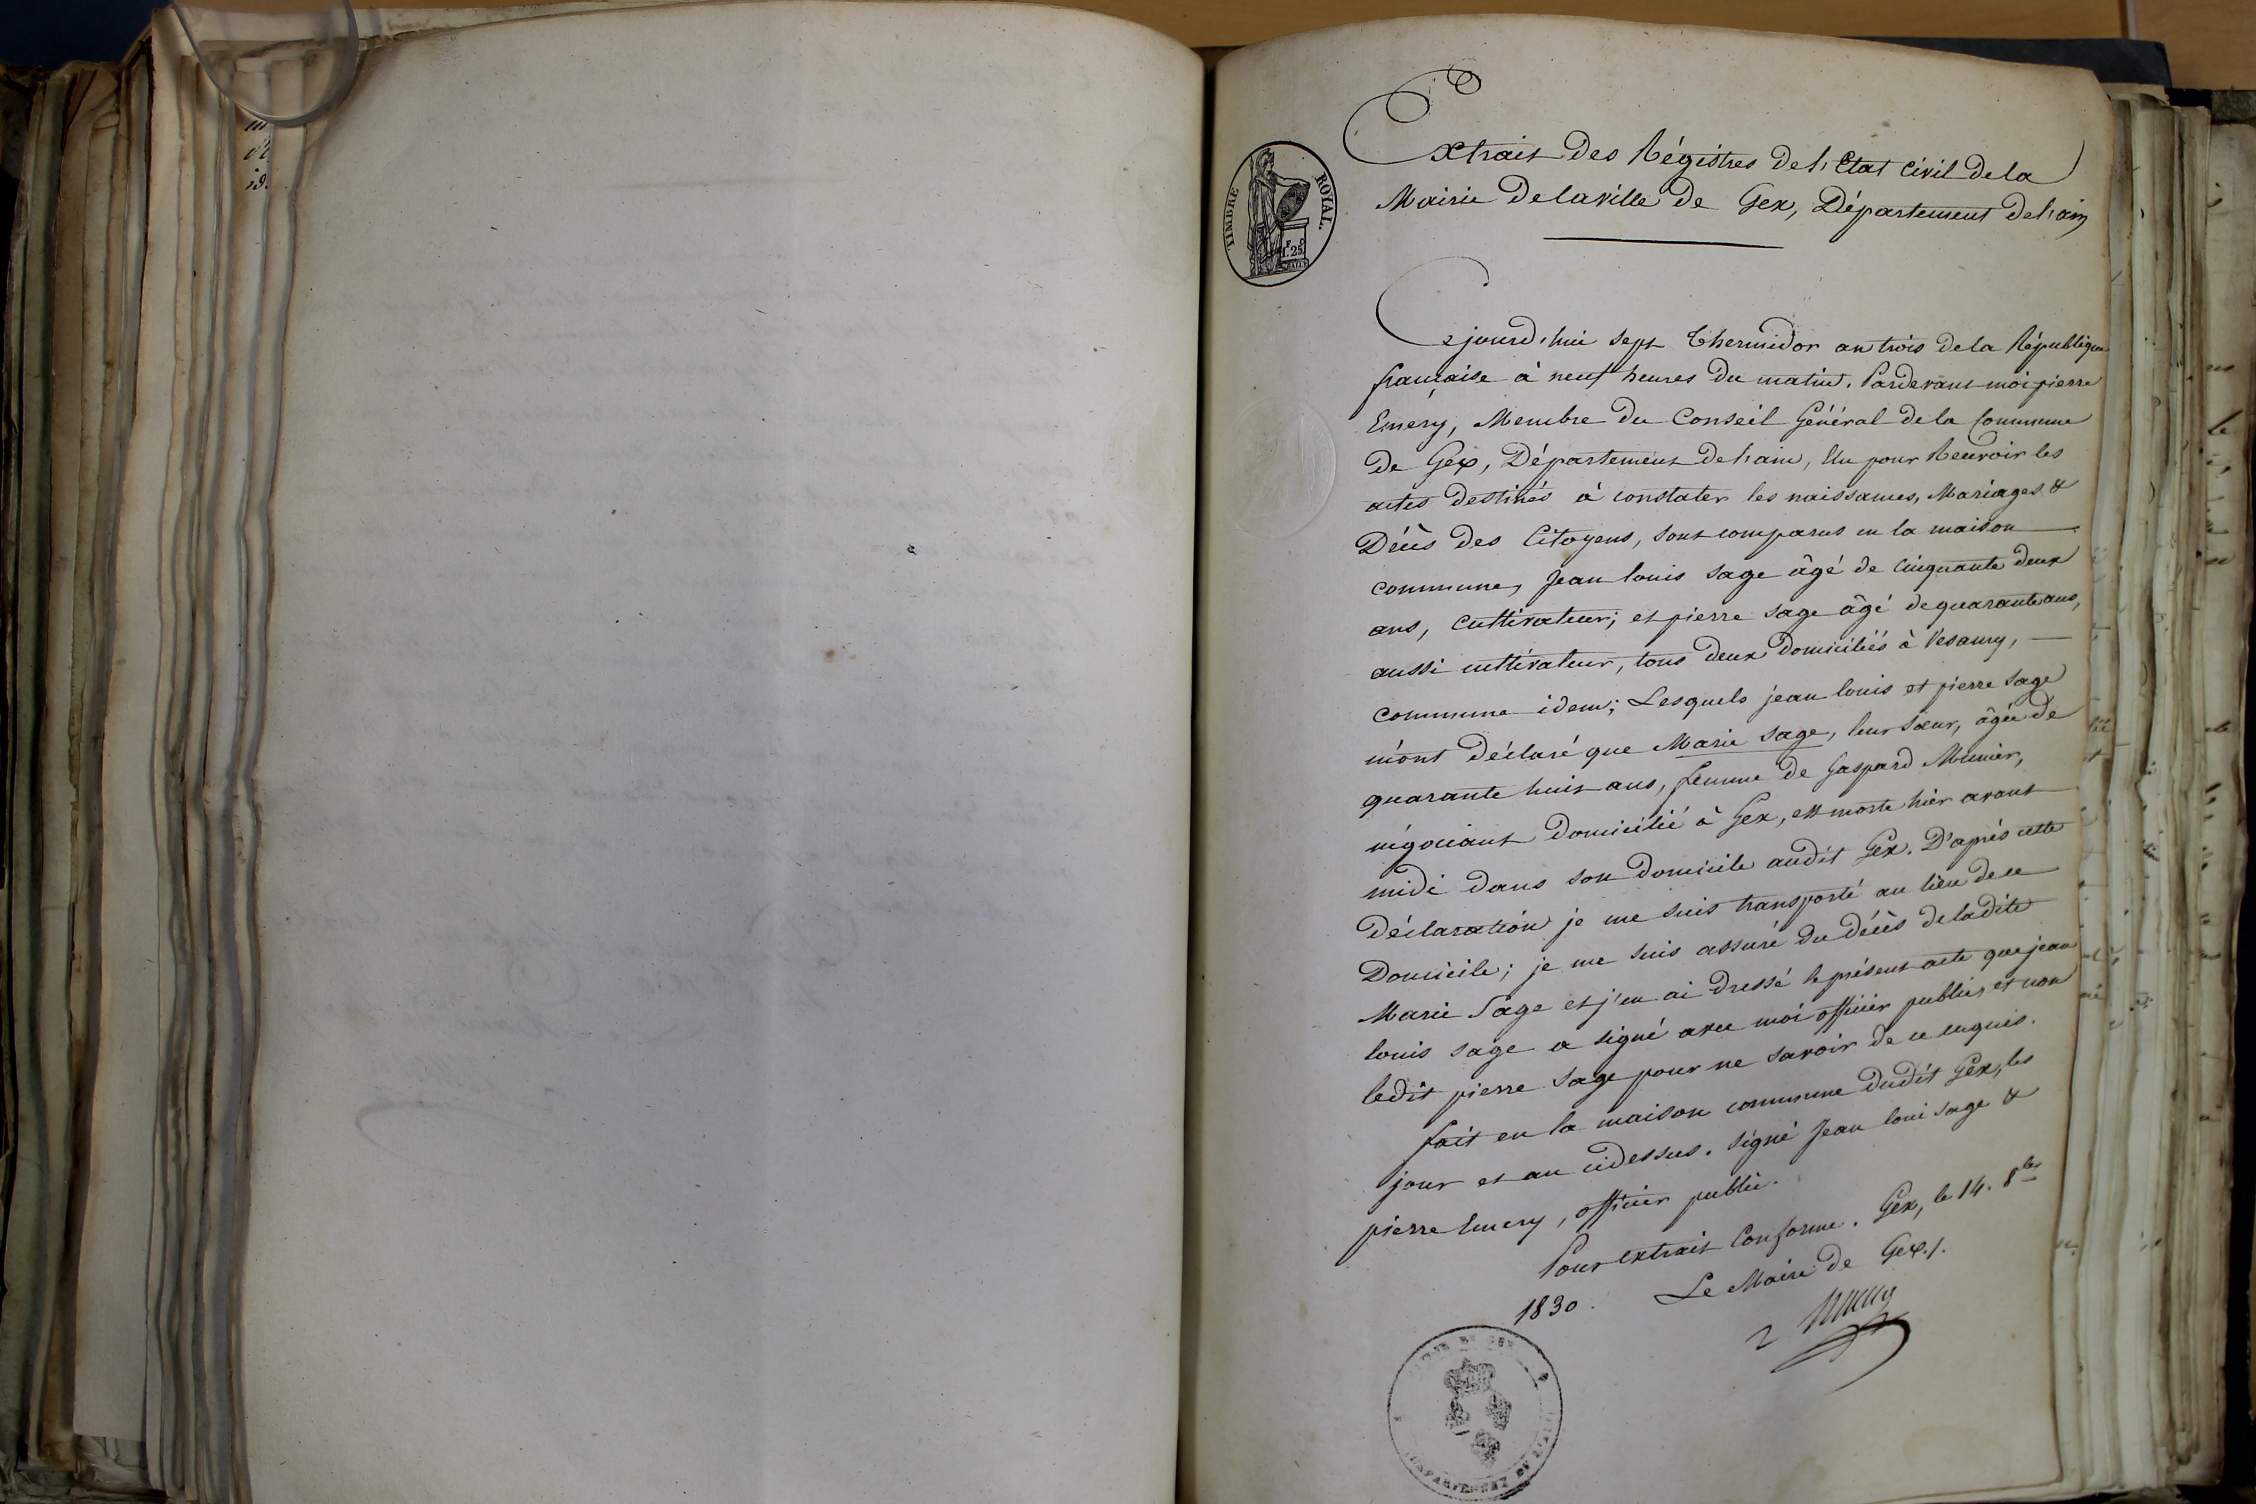 Extrait des Régistres de l'Etat Civil de la
Mairie de la ville de Gex, Département de l'ain
TIMBRE ROYAL.
1.25
Cejourd'hui sept Thermidor an trois de la République
française à neuf heures du matin. Pardevant moi pierre
Emery, Membre du Conseil Général de la Commune
de Gex, Département de l'ain, élu pour Recevoir les
actes destinés à constater les naissances, Mariages &
Décès des Citoyens, sont comparus en la maison
commune, Jean louis sage âgé de cinquante deux
ans, cultivateur; et pierre sage âgé de quarante ans,
aussi cultivateur, tous deux domiciliés à Vesancy,
commune idem; Lesquels jean louis et pierre sage
m'ont déclaré que Marie sage, leur sœur, âgée de
quarante huit ans, femme de Gaspard Munier,
négociant domicilié à Gex, est morte hier avant
midi dans son domicile audit Gex. D'après cette
Déclaration je me suis transporté au lieu de ce
Domicile; je me suis assuré du décès de ladite
Marie Sage et j'en ai dressé le présent acte que jean
louis sage a signé avec moi officier public, et non
ledit pierre sage pour ne savoir de ce enquis.
fait en la maison commune dudit Gex, les
jour et an cidessus. signé Jean loui sage &
pierre Emery, officier public.
Pour extrait Conforme. Gex, le 14. 8bre
1830. Le Maire de Gex./.
DEPARTEMENT DE L'AIN